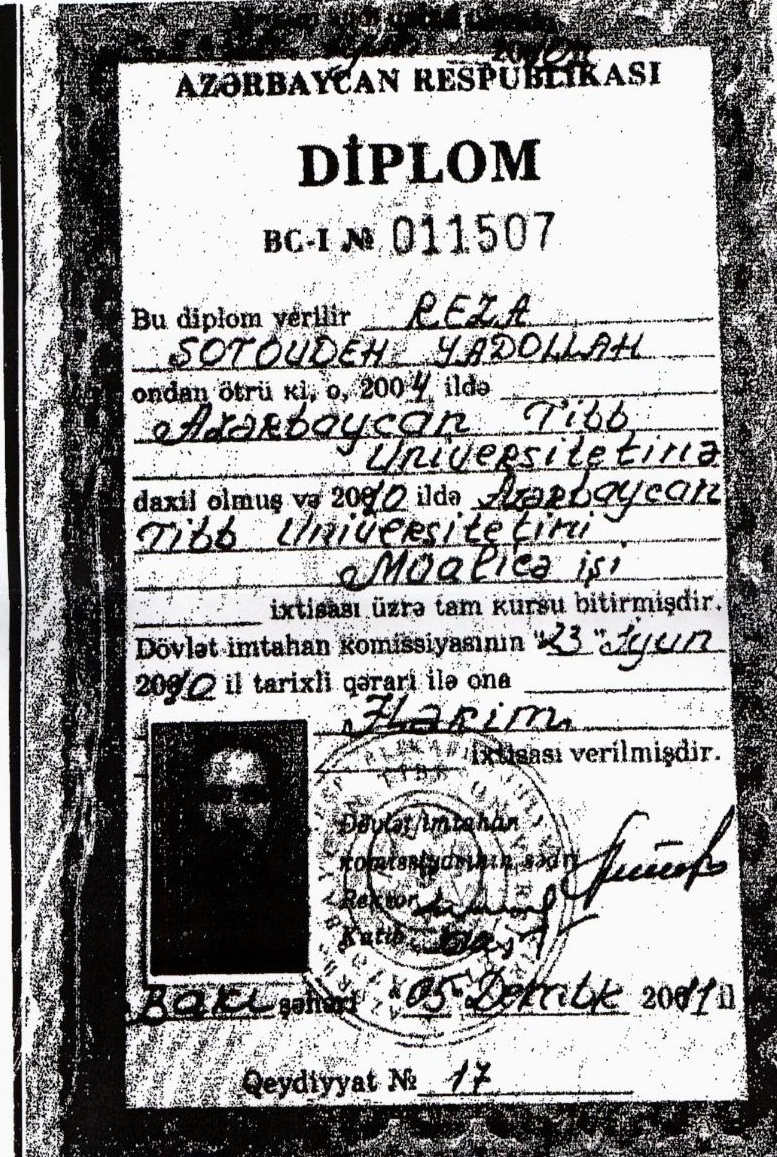 AZƏRBAYCAN RESPUBLİKASI
DİPLOM
BC-I № 011507
Bu diplom verilir REZA
SOTOUDEH YADOLLAH
ondan ötrü ki, o, 2004 ildə
Azərbaycan Tibb
Universitetinə
daxil olmuş və 2010 ildə Azərbaycan
Tibb Universitetini
Müalicə işi
ixtisası üzrə tam kursu bitirmişdir.
Dövlət imtahan komissiyasının "23" İyun
2010 il tarixli qərari ilə ona
Həkim
ixtisası verilmişdir.
Dövlət imtahan
komissiyasının sədri
Rektor
Katib
Bakı şəhəri "05" 2011 il
Qeydiyyat № 17